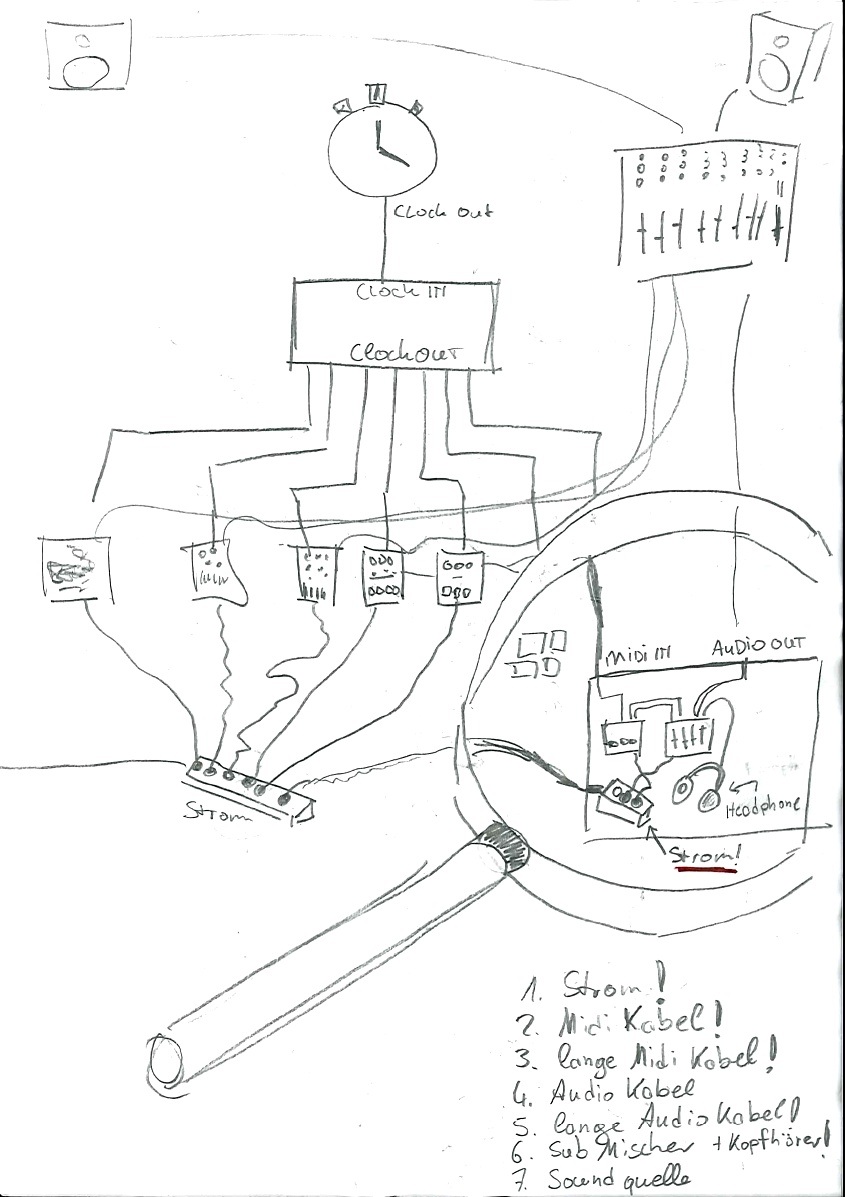 Clock Out
Clock IN
Clock OUT
MIDI IN
AUDIO OUT
Headphone
Strom
Strom!
1. Strom!
2. Midi Kabel!
3. lange Midi Kabel!
4. Audio Kabel
5. lange Audio Kabel!
6. Sub Mischer + Kopfhörer!
7. Sound quelle